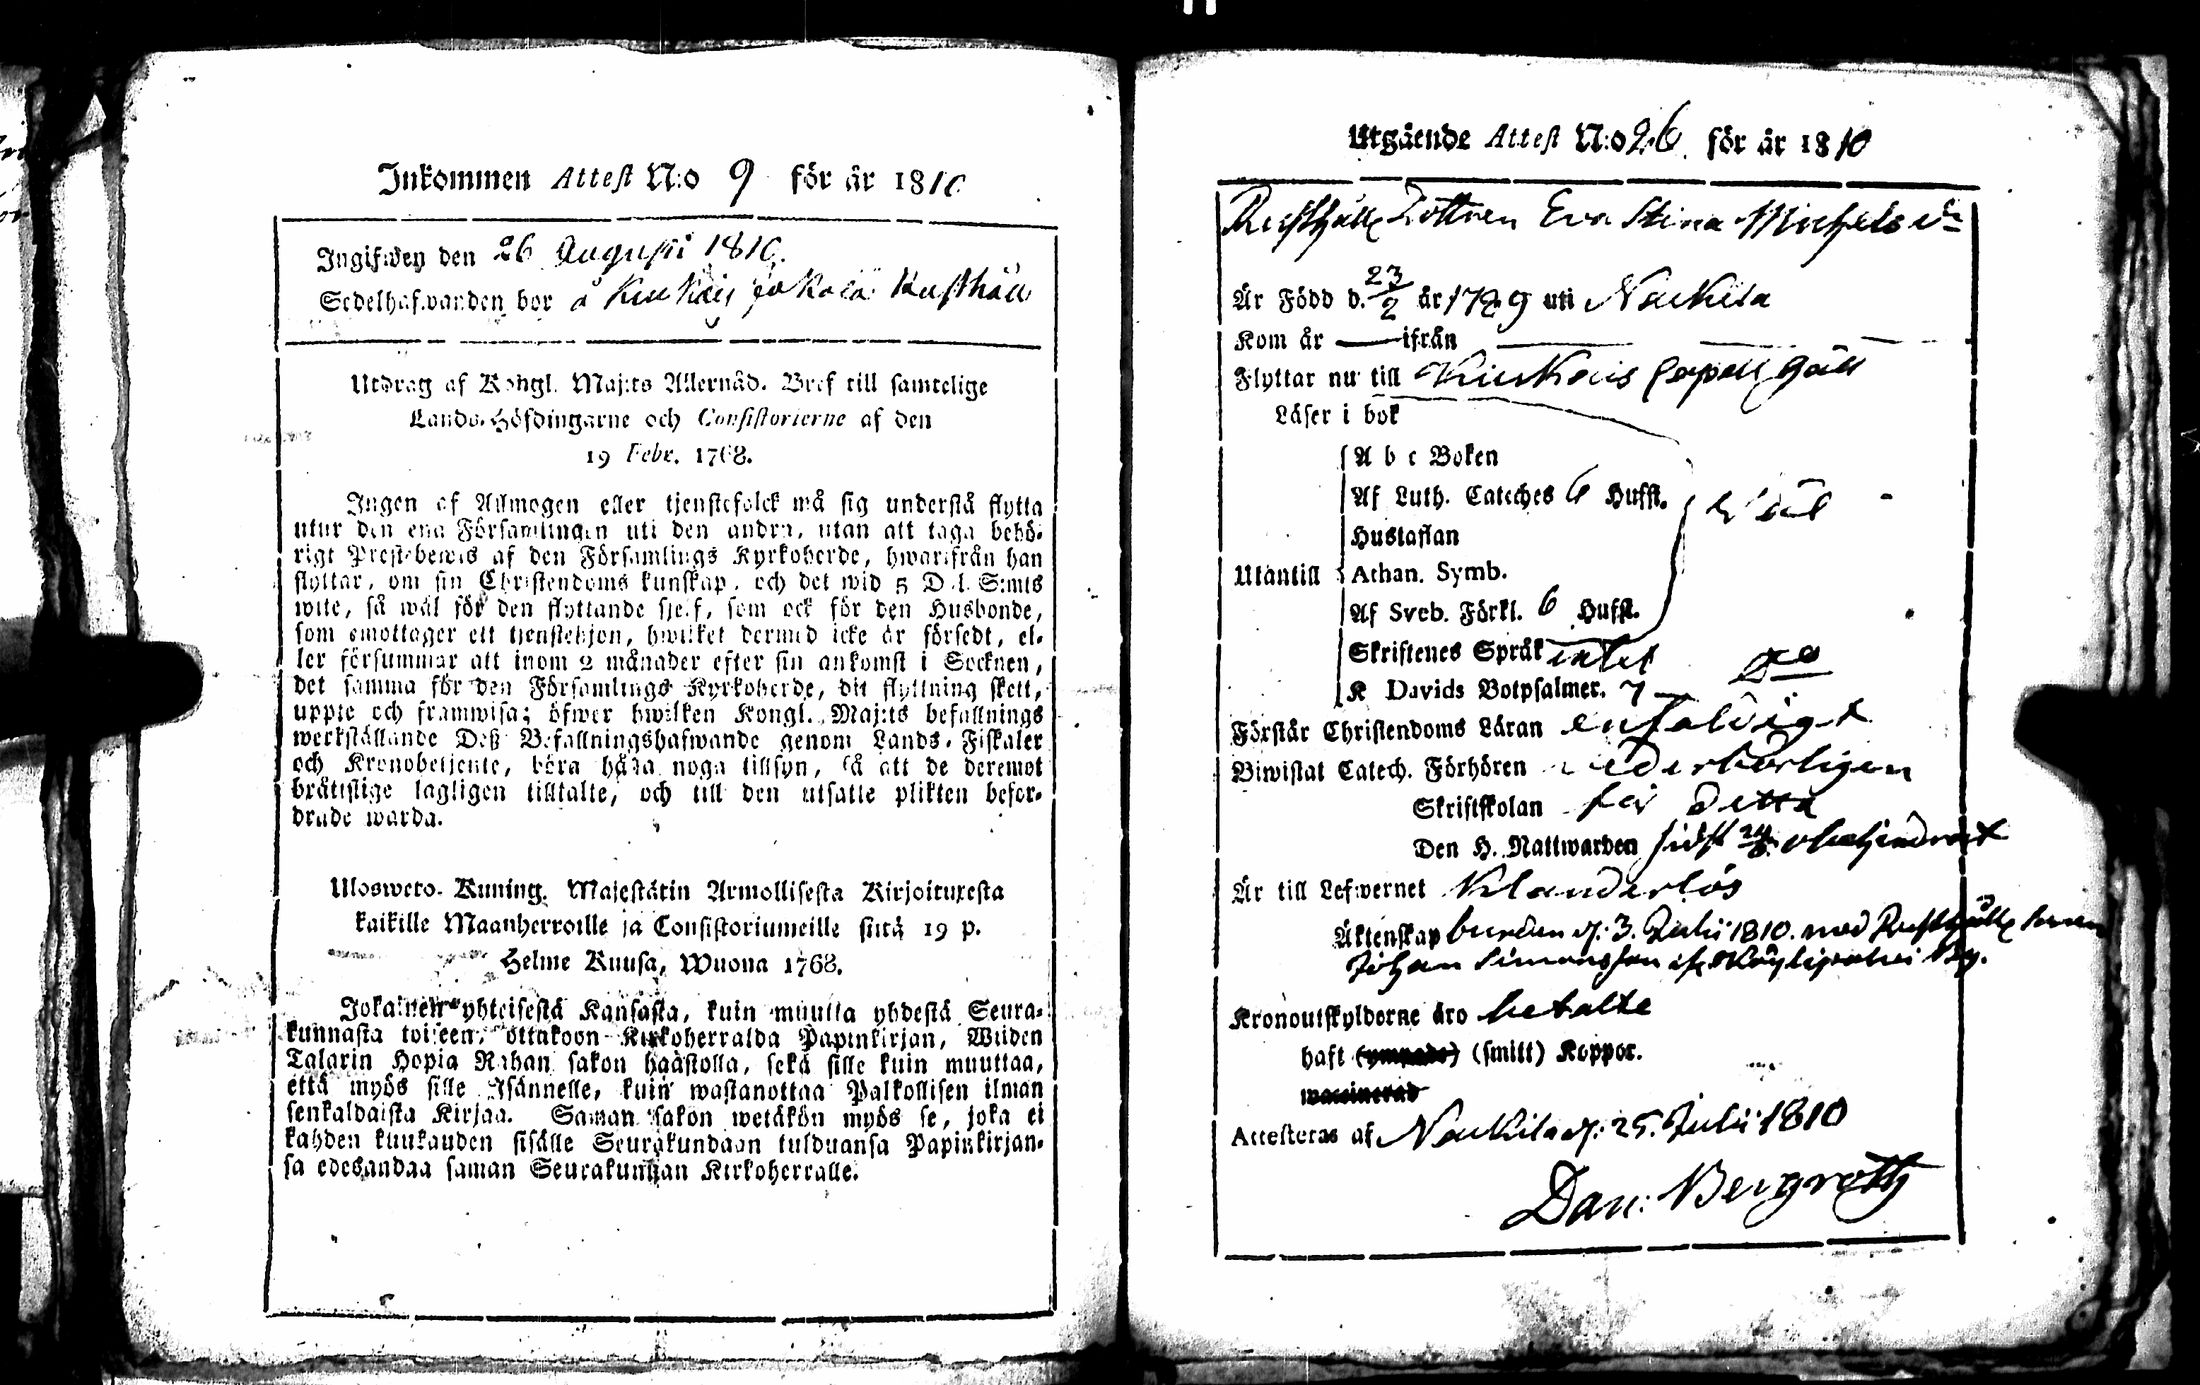 Inkommen Attest N:o 9 för år 1810
Ingifwen den 26 Augusti 1810.
Sedelhafwanden bor å Kiukais Jokala Rusthåll
Utdrag af Kongl. Maj:ts Allernåd. Bref till samtelige
Lands-Höfdingarne och Consistorierne af den
19 Febr. 1768.
Ingen af Allmogen eller tjenstefolck må sig understå flytta
utur den ena Församlingen uti den andra, utan att taga behö-
rigt Prestebewis af den Församlings Kyrkoherde, hwarifrån han
flyttar, om sin Christendoms kunskap, och det wid 5 D:l. S:mts
wite, så wäl för den flyttande sjelf, som ock för den Husbonde,
som emottager ett tjenstehjon, hwilket dermed icke är försedt, el-
ler försummar att inom 2 månader efter sin ankomst i Socknen,
det samma för den Församlings Kyrkoherde, dit flyttning skett,
uppte och framwisa; öfwer hwilken Kongl. Maj:ts befallnings
werkställande Deß Befallningshafwande genom Lands-Fiskaler
och Kronobetjente, böra hafwa noga tillsyn, så att de deremot
bråttslige lagligen tilltalte, och till den utsatte plikten befor-
drade warda.
Ulosweto. Kuning. Majestätin Armollisesta Kirjoituxesta
kaikille Maanherroille ja Consistoriumeille siitä 19 p.
Helme Kuusa, Wuona 1768.
Jokainen yhteisestä Kansasta, kuin muutta yhdestä Seura-
kunnasta toiseen, ottakoon Kirkoherralda Papinkirjan, Wiiden
Talarin Hopia Rahan sakon haastolla, sekä sille kuin muuttaa,
että myös sille Isännelle, kuin wastanottaa Palkollisen ilman
senkaldaista Kirjaa. Saman sakon wetäkön myös se, joka ei
kahden kuukauden sisälle Seurakundaan tulduansa Papinkirjan-
sa edesandaa saman Seurakunnan Kirkoherralle.
Utgående Attest N:o 26 för år 1810
Rusthålls Dottren Eva Stina Michelsdr
Är Född d. 23/2 år 1789 uti Nackila
Kom år — ifrån —
Flyttar nu till Kiukais Capell Gäll
Läser i bok
A b c Boken
Af Luth. Cateches 6 Hufst. Wäl
Hustaflan
Utantill Athan. Symb.
Af Sveb. Förkl. 6 Hufst.
Skriftenes Språk intet
K Davids Botpsalmer. 7 Do
Förstår Christendoms Läran enfaldigt
Biwistat Catech. Förhören wederbörligen
Skriftskolan för detta
Den H. Nattwarden sidst 24/6 obehindrat
Är till Lefwernet Klanderlös
Äktenskap bunden d. 3. Julii 1810. med Rusthålls sonen
Johan Simonsson af Köylipolvi By.
Kronoutskylderne äro betalte
haft (ympade) (smitt) Koppor.
waccinerad
Attesteras af Nackila d. 25. Julii 1810
Dan: Bergroth